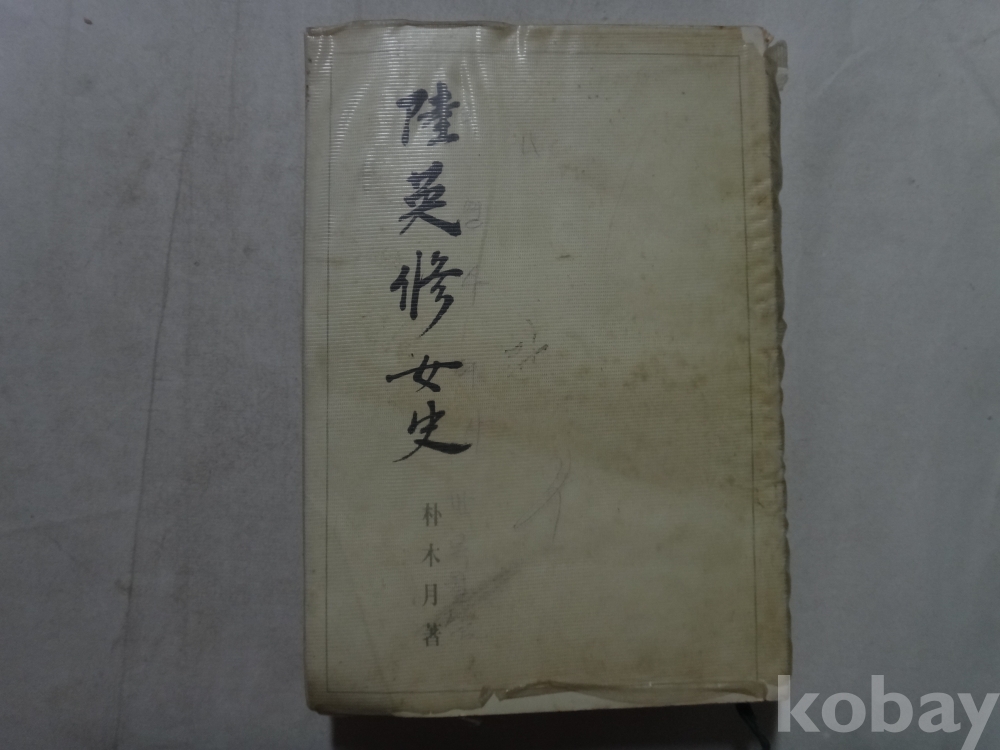 陸英修女史
朴木月著
kobay